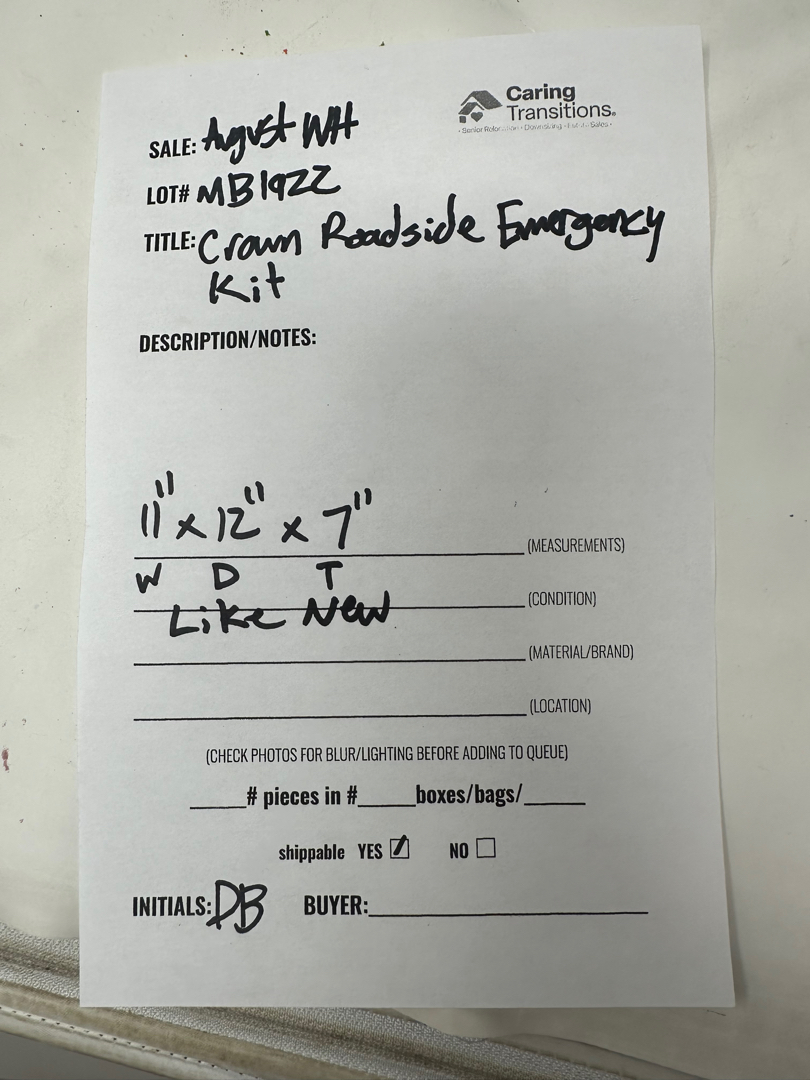 Caring
Transitions®
• Senior Relocation • Downsizing • Estate Sales •
SALE: August WH
LOT# MB1922
TITLE: Crown Roadside Emergency
Kit
DESCRIPTION/NOTES:
11" x 12" x 7"
(MEASUREMENTS)
W D T
Like New
(CONDITION)
(MATERIAL/BRAND)
(LOCATION)
(CHECK PHOTOS FOR BLUR/LIGHTING BEFORE ADDING TO QUEUE)
_____# pieces in #_____boxes/bags/_____
shippable YES ☑ NO ☐
INITIALS: DB BUYER: